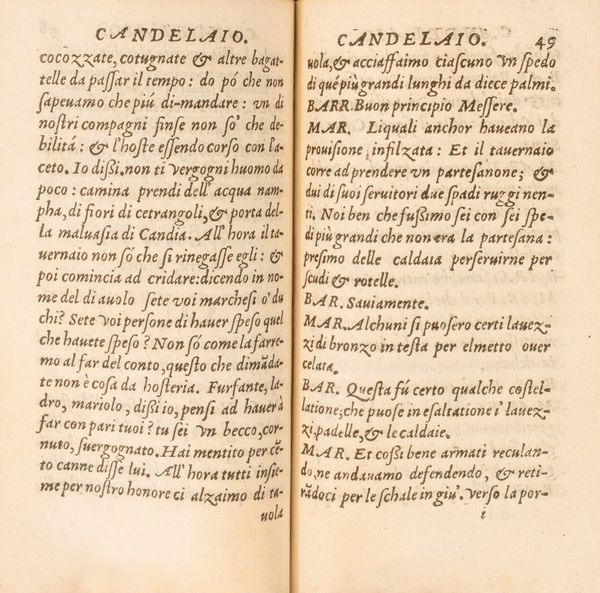 CANDELAIO.
cocozzate, cotugnate & altre bagat-
telle da passar il tempo: do pó che non
sapeuamo che piú di-mandare: vn di
nostri compagni finse non só' che de-
bilitá: & l'hoste essendo corso con la-
ceto. Io dissi. non ti vergogni huomo da
poco: camina prendi dell' acqua nam-
pha, di fiori di cetrangoli, & porta del-
la maluasia di Candia. All' hora il ta-
uernaio non só che si rinegasse egli: &
poi comincia ad cridare: dicendo in no-
me del di auolo sete voi marchesi o' du
chi? Sete voi persone di hauer speso quel
che hauete speso? Non só come la farre-
mo al far del conto, questo che dimãda-
te non è cosa da hosteria. Furfante, la-
dro, mariolo, dissi io, pensi ad hauer à
far con pari tuoi? tu sei vn becco, cor-
nuto, suergognato. Hai mentito per cẽ-
to canne disse lui. All' hora tutti insie-
me per nostro honore ci alzaimo di ta-
uola
CANDELAIO. 49
uola, & acciaffaimo ciascuno vn spedo
di qué piu grandi lunghi da diece palmi.
BARR. Buon principio Messere.
MAR. Liquali anchor haueano la
prouisione infilzata: Et il tauernaio
corre ad prendere vn partesanone; &
dui di suoi seruitori due spadi ruggi nen-
ti. Noi ben che fussimo sei con sei spe-
di piu grandi che non era la partesana:
presimo delle caldaia perseruirne per
scudi & rotelle.
BAR. Sauiamente.
MAR. Alchuni si puosero certi lauez-
zi di bronzo in testa per elmetto ouer
celata.
BAR. Questa fú certo qualche costel-
latione; che puose in esaltatione i' lauez-
zi, padelle, & le caldaie.
MAR. Et cossi bene armati reculan-
do, ne andauamo defendendo, & reti-
rãdoci per le schale in giu'. verso la por-
i